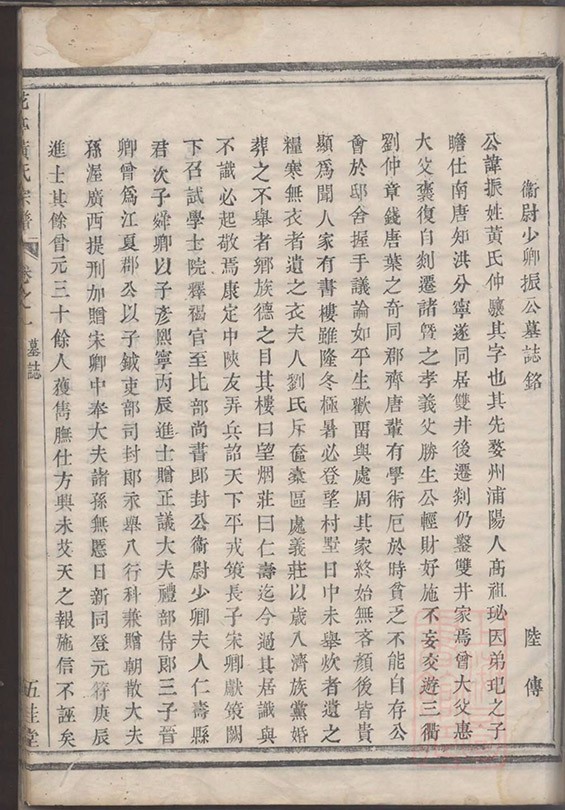 衞尉少卿振公墓誌銘
陸傳
公諱振姓黃氏仲驤其字也其先婺州浦陽人髙祖玭因弟玘之子
瞻仕南唐知洪分寧遂同居雙井後遷剡仍鑿雙井家焉曾大父惠
大父襃復自剡遷諸曁之孝義父勝生公輕財好施不妄交遊三衢
劉仲章錢唐葉之奇同郡齊唐輩有學術厄於時貧乏不能自存公
會於邸舍握手議論如平生歡畱與處周其家終始無吝顔後皆貴
顯爲聞人家有書樓雖隆冬極暑必登望村墅日中未舉炊者遺之
糧寒無衣者遺之衣夫人劉氏斥奩橐區處義莊以歲入濟族黨婚
葬之不舉者鄉族德之目其樓曰望烟莊曰仁壽迄今過其居識與
不識必起敬焉康定中陝友弄兵詔天下平戎策長子宋卿獻策闕
下召試學士院釋褐官至比部尚書郎封公衞尉少卿夫人仁壽縣
君次子舜卿以子彥熙寧丙辰進士贈正議大夫禮部侍郎三子晉
卿曾爲江夏郡公以子鉞吏部司封郎永舉八行科兼贈朝散大夫
孫渥廣西提刑加贈宋卿中奉大夫諸孫無慝日新同登元符庚辰
進士其餘曾元三十餘人獲雋膴仕方興未艾天之報施信不誣矣
黃氏宗譜
卷之一
墓誌
五桂堂